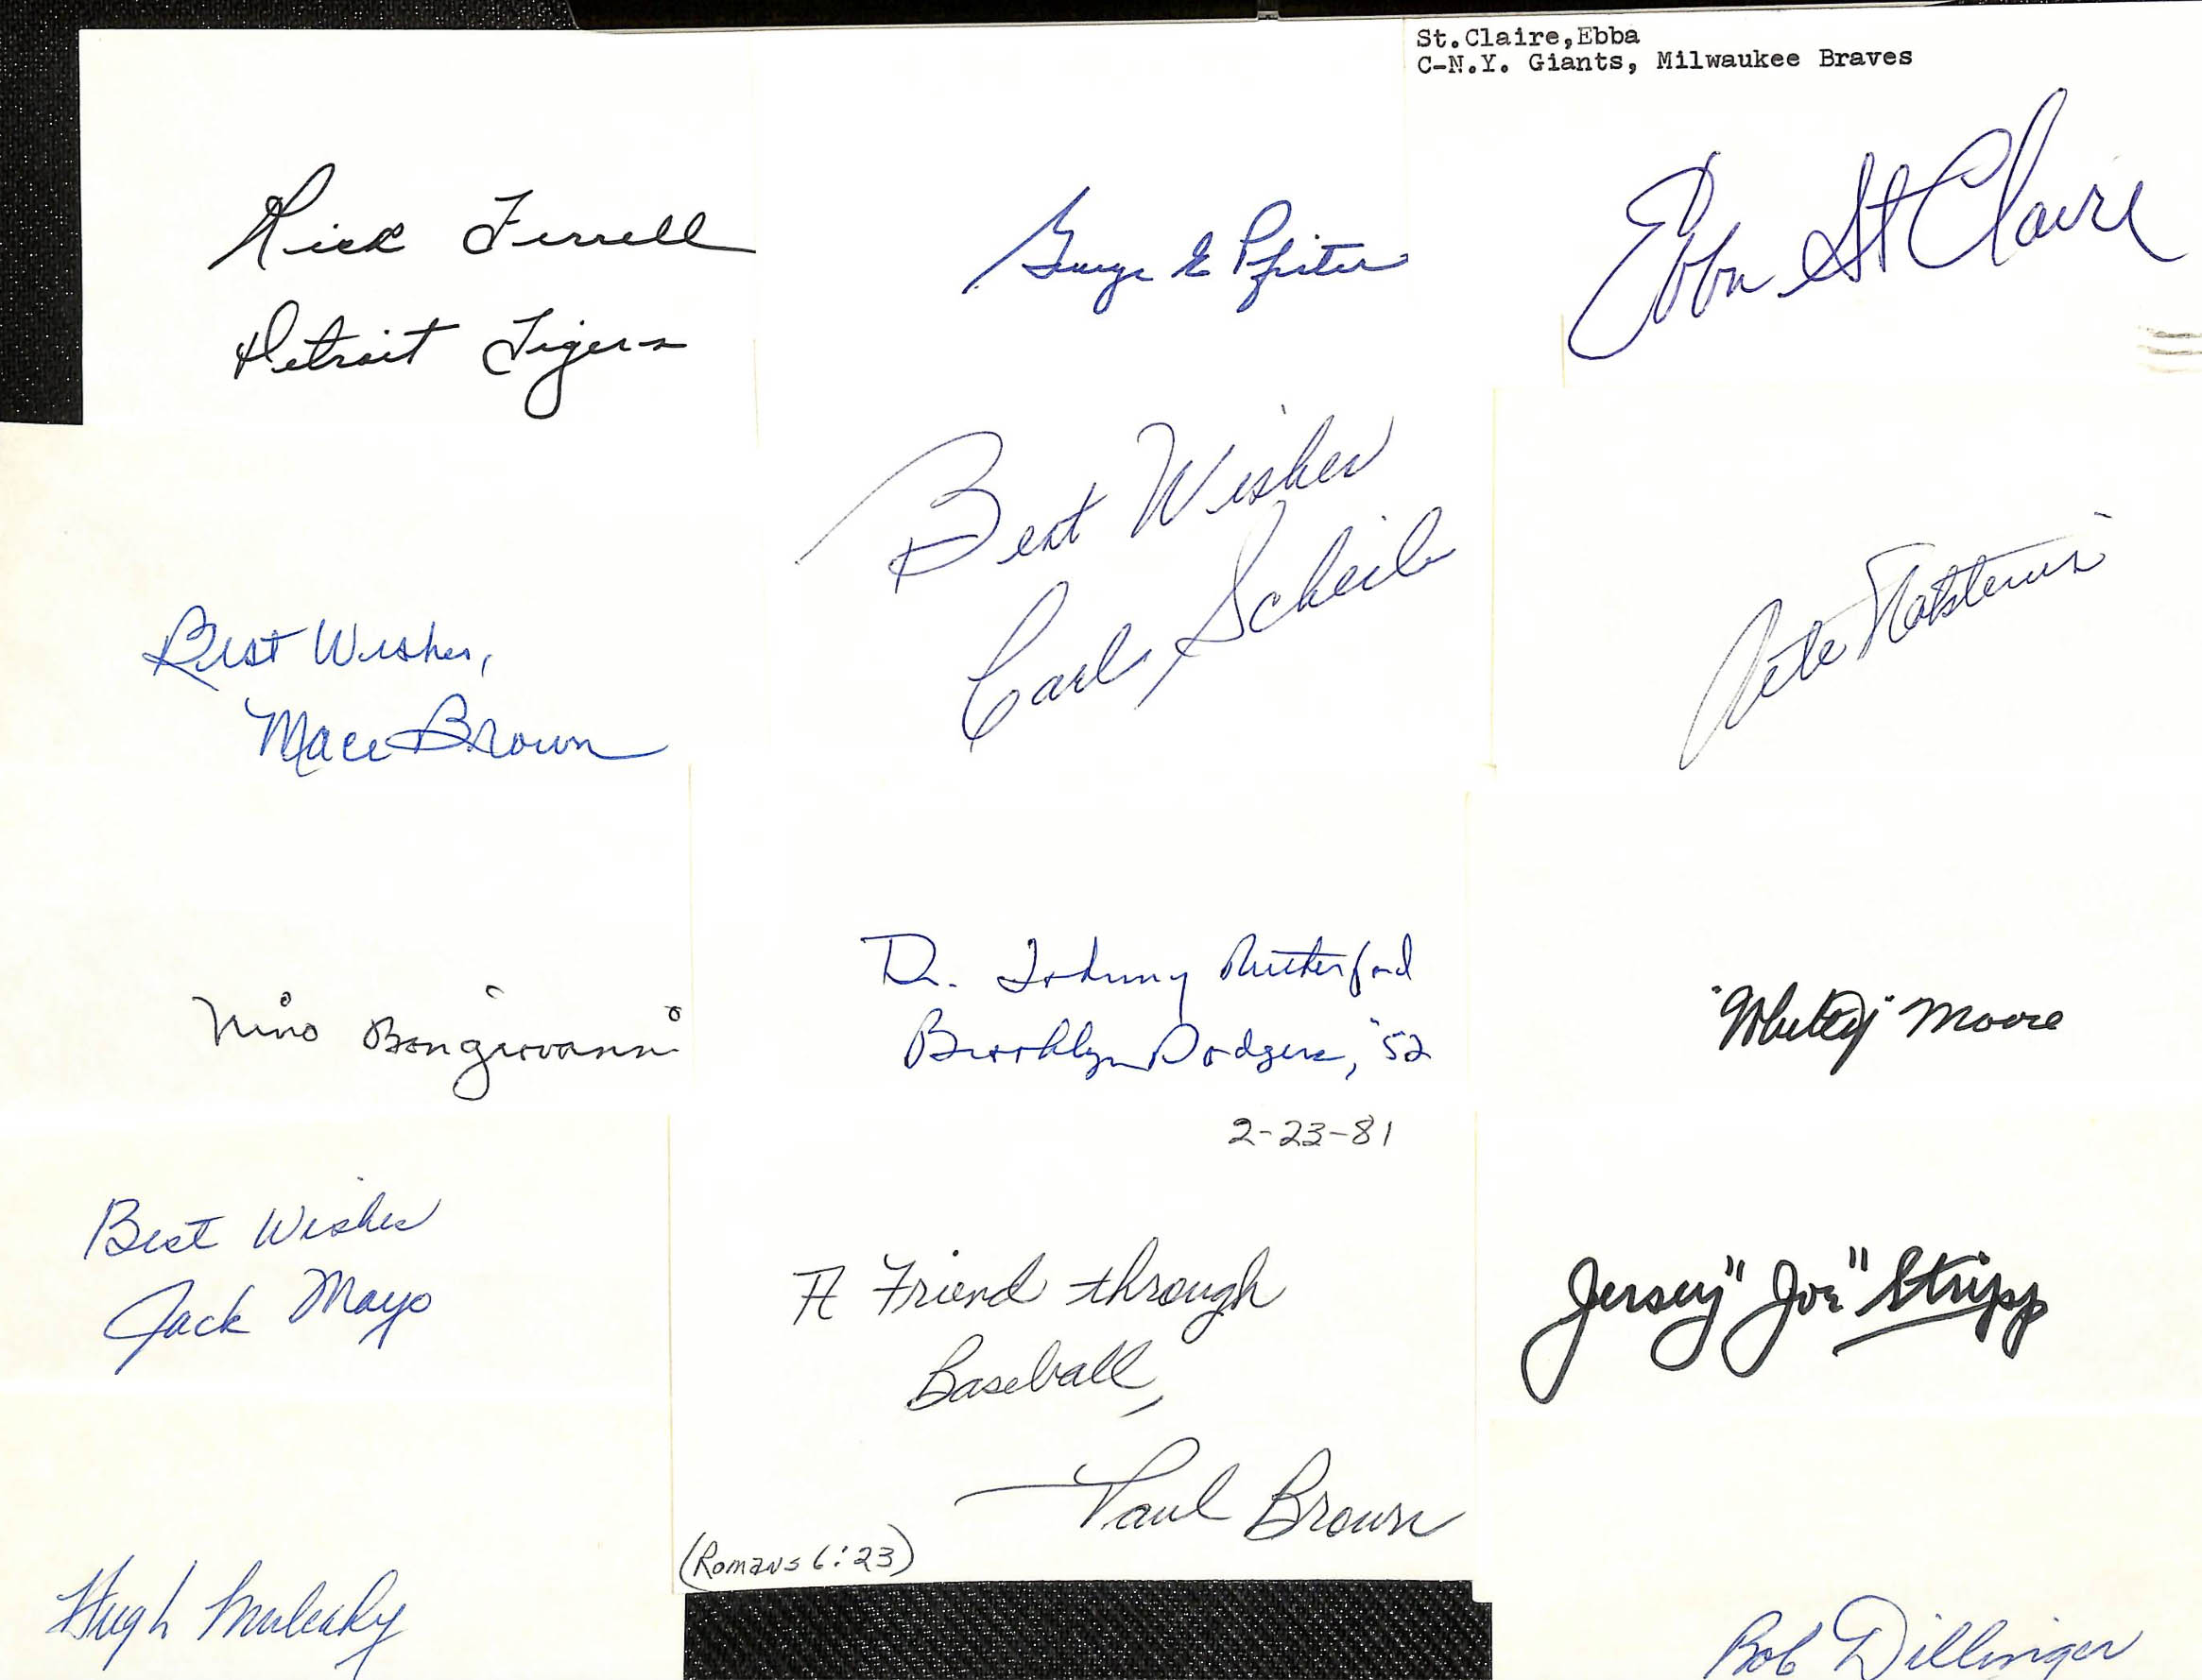 St.Claire,Ebba
C-N.Y. Giants, Milwaukee Braves
Rick Ferrell
Detroit Tigers
George E Pfister
Ebba St Claire
Best Wishes,
Mace Brown
Best Wishes
Carl Scheib
Pete
Nino Bongiovanni
Dr. Johnny Rutherford
Brooklyn Dodgers, '52
"Whitey" Moore
Best Wishes
Jack Mayo
2-23-81
A Friend through
Baseball,
Paul Brown
(Romans 6:23)
Jersey "Joe" Stripp
Hugh Mulcahy
Bob Dillinger